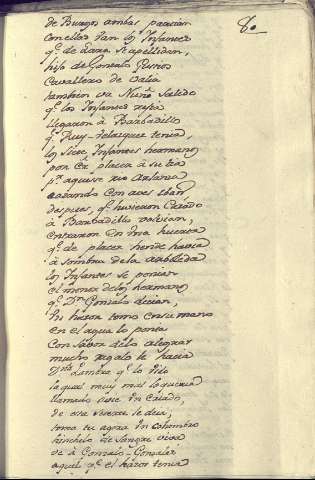 de Burgos ambas parecian
con ellos van los Infantes
q.e de Lara se apellidan,
hijos de Gonzalo Gustios
Cavallero de valia
tambien va Nuño Salido
q.e los Infantes
llegaron à Barbadillo
q.e Ruy-Velazquez tenia,
los Siete Infantes hermanos
por dar placer à su tia
p.r aquese rio Arlanza
cazando con aves iban
despues, q.e huvieron cazado
à Barbadillo volvian,
entraron en una huerta
q.e de placer hende havia
à sombra de la arboleda
los Infantes se ponian
el menor de los hermanos
q.e D.n Gonzalo decian,
su hazor tomo en su mano
en el agua lo ponia
con sabor de lo alegrar
mucho regalo le hacia
D.na Lambra q.e lo vido
la qual muy mal lo queria
llamado havie un criado,
de esta suerte le decia,
toma tu agora un cohombro
hinchelo de sangre viva
ve à Gonzalo-Gonzalez
aquel q.e el hazor tenia
80